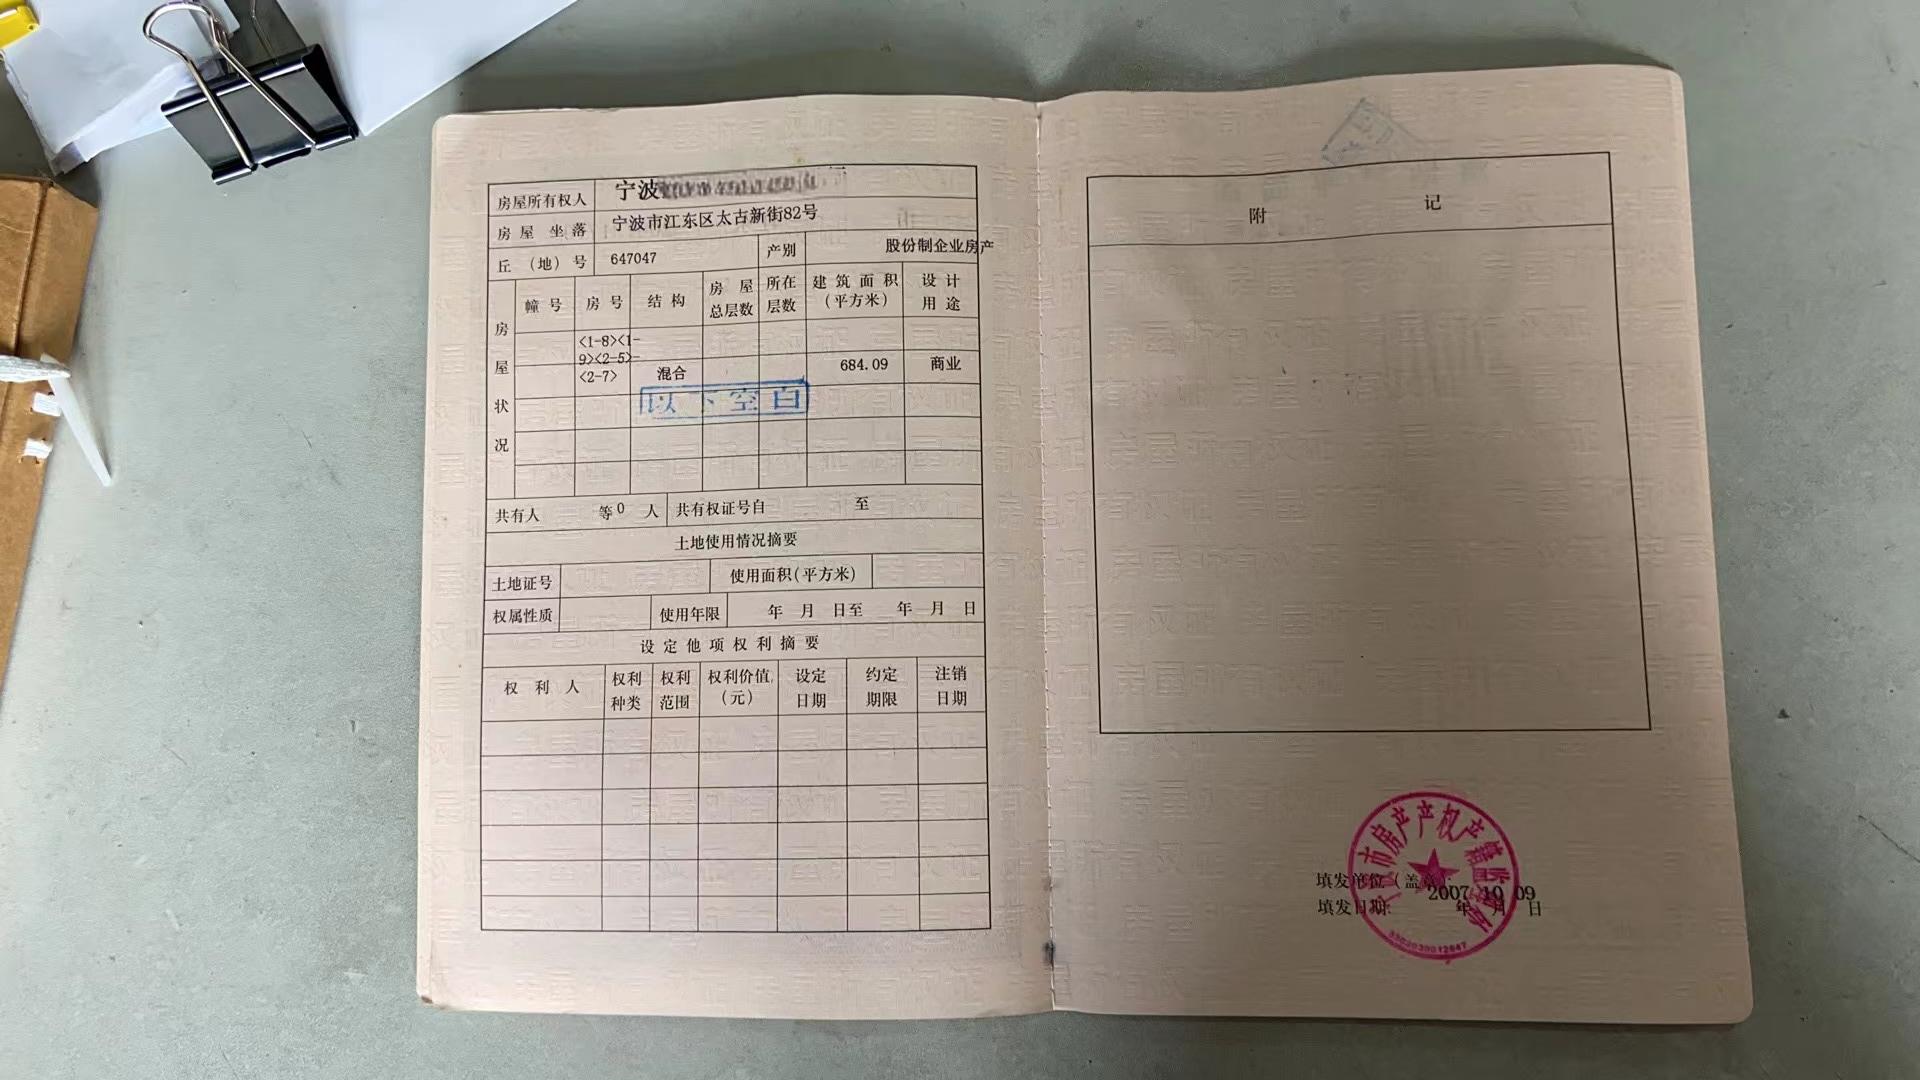 房屋所有权人 宁波
房屋坐落 宁波市江东区太古新街82号
丘（地）号 647047 产别 股份制企业房产
房屋状况
幢号 房号 结构 房屋总层数 所在层数 建筑面积（平方米） 设计用途
<1-8><1-
9><2-5>-
<2-7> 混合 684.09 商业
以下空白
共有人 等0人 共有权证号自 至
土地使用情况摘要
土地证号 使用面积(平方米)
权属性质 使用年限 年 月 日至 年 月 日
设定他项权利摘要
权利人 权利种类 权利范围 权利价值（元） 设定日期 约定期限 注销日期
附 记
市房产产权产籍监
填发单位（盖章）:
2007 10 09
填发日期: 年 月 日